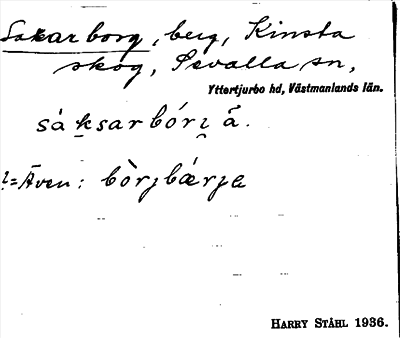 Saxarborg, berg, Kinsta
skog, Sevalla sn,
Yttertjurbo hd, Västmanlands län.
sáksarbórj å̄.
= Även: bòrjbǽrja
HARRY STÅHL 1936.